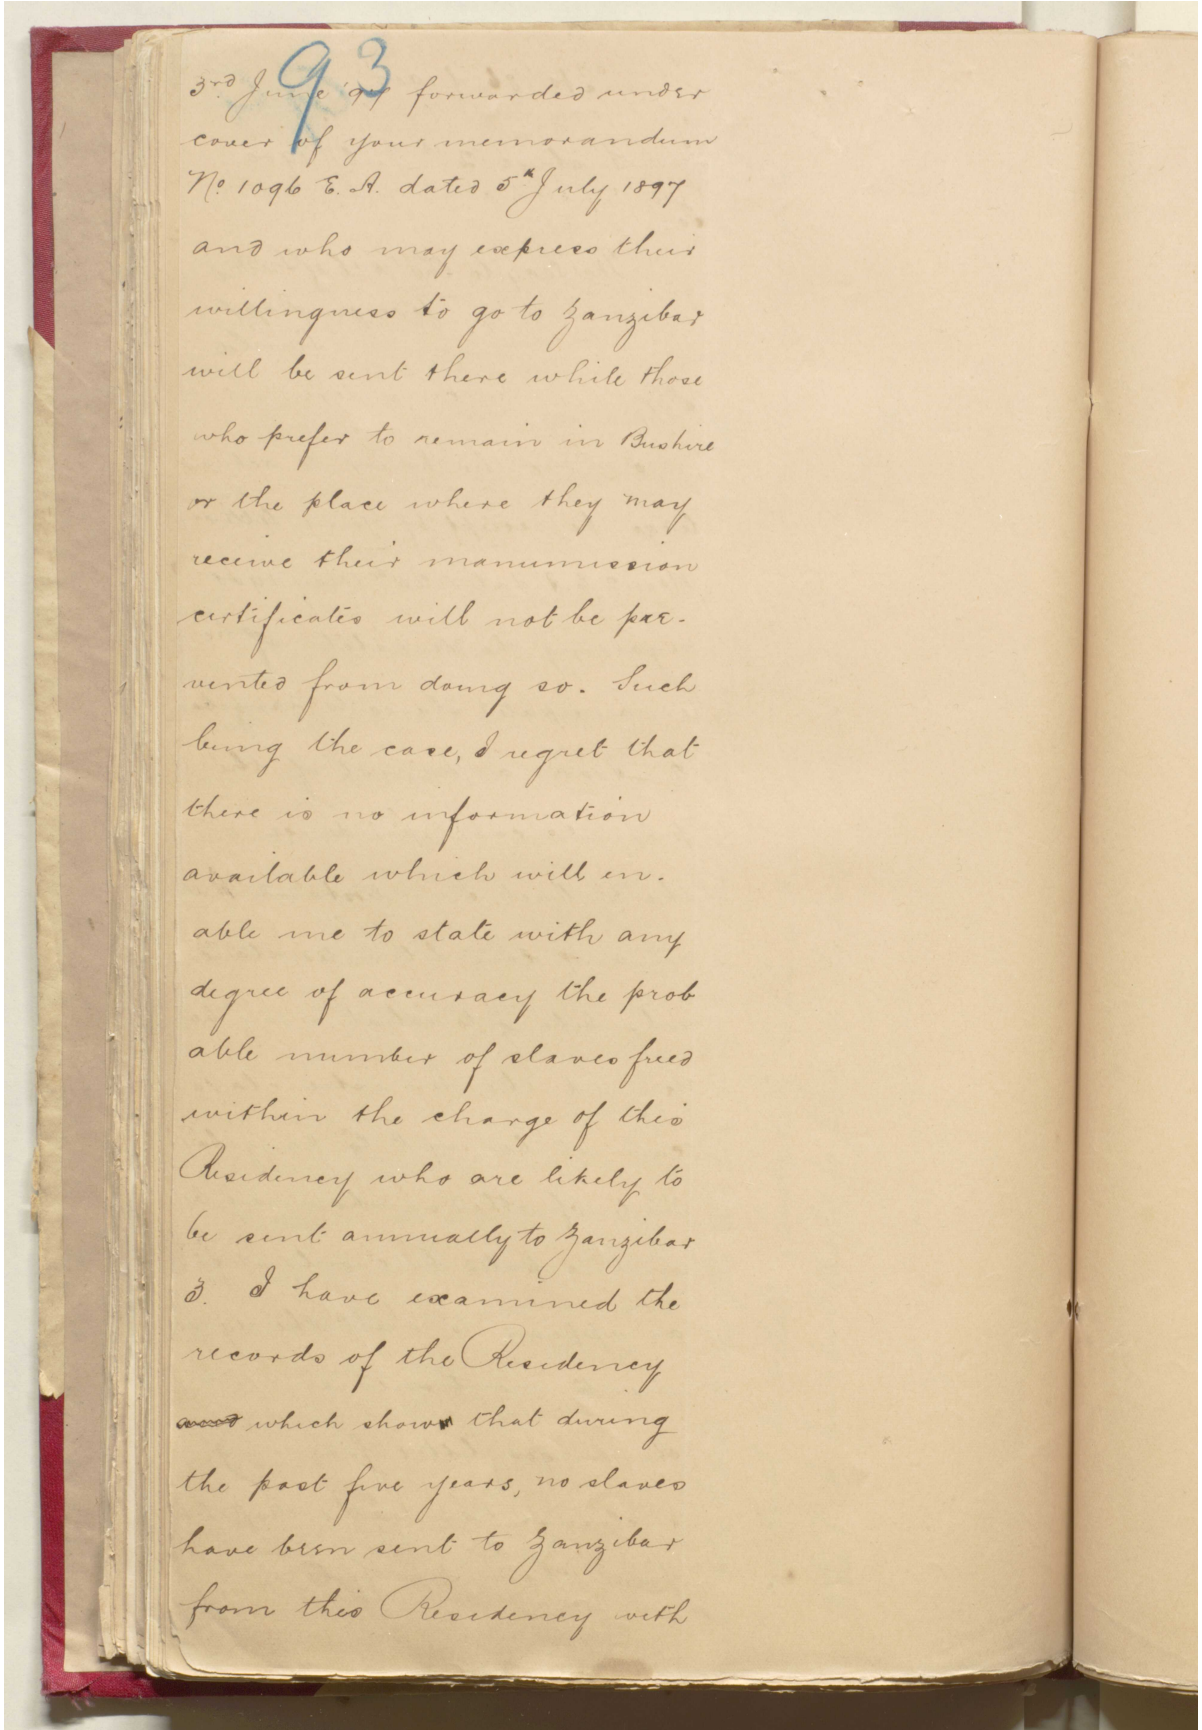 93
3rd June '97 forwarded under
cover of your memorandum
No. 1096 E. A. dated 5th July 1897
and who may express their
willingness to go to Zanzibar
will be sent there while those
who prefer to remain in Bushire
or the place where they may
receive their manumission
certificates will not be pre-
vented from doing so. Such
being the case, I regret that
there is no information
available which will en-
able me to state with any
degree of accuracy the prob
able number of slaves freed
within the charge of this
Residency who are likely to
be sent annually to Zanzibar
3. I have examined the
records of the Residency
and which show that during
the past five years, no slaves
have been sent to Zanzibar
from this Residency with